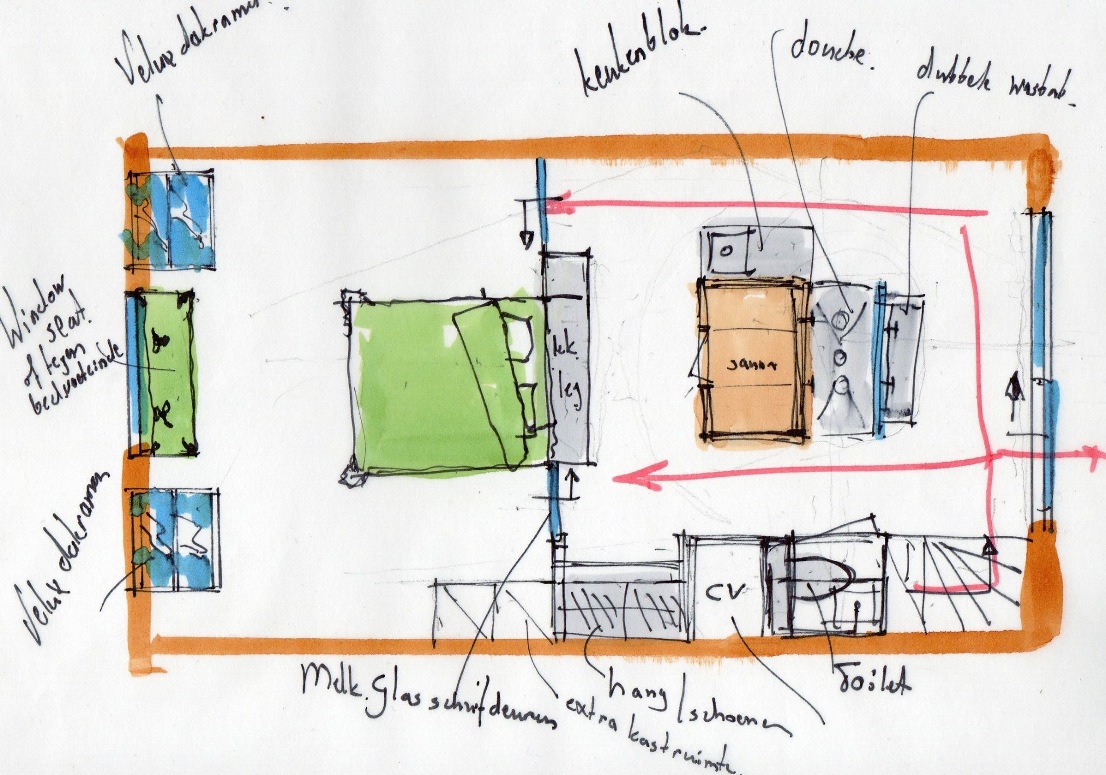 Velux dakramen.
keukenblok.
douche.
dubbele wastab.
Window
seat.
of tegen
bedvooreinde
lek
leg
sauna
Velux dakramen
CV
Melk.Glas schuifdeuren
extra kastruimte.
hang/schoenen
Toilet